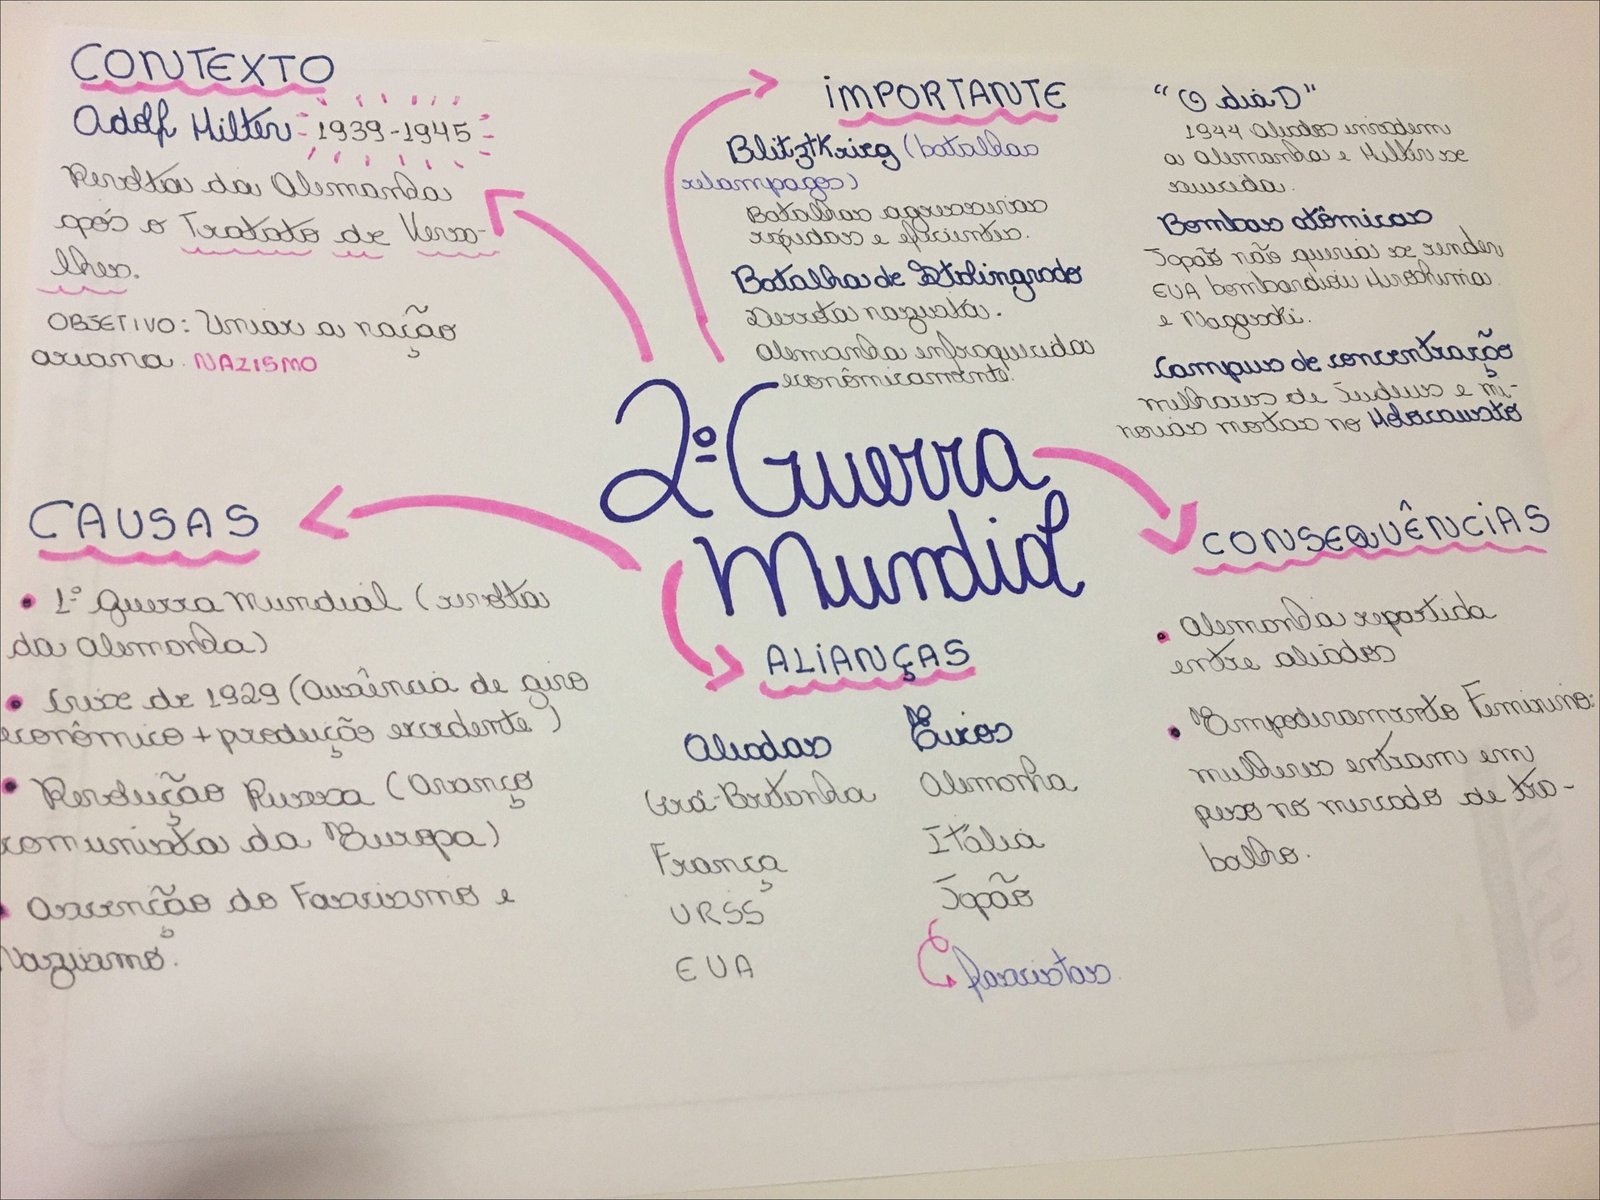 CONTEXTO
Adolf Hilter 1939-1945
Revolta da Alemanha
após o Tratato de Versa-
lhes.
OBJETIVO: Uniar a nação
ariana. NAZISMO
IMPORTANTE
BlitztKrieg (batalhas
relampagos)
Batalhas agressivas
rápidas e eficientes.
Batalha de Stalingrado
Derrota nazista.
Alemanha enfraquecida
econômicamente.
"O dia D"
1944 Aliados invadem
a Alemanha e Hilter se
suicida.
Bombas atômicas
Japão não queria se render
EUA bombardiou Hiroshima
e Nagasaki.
Campus de concentração
milhares de Judeus e mi-
norias mortas no Holocausto
2º Guerra
Mundial
CAUSAS
• 1º Guerra Mundial (revolta
da Alemanha)
• Crise de 1929 (Ausência de giro
econômico + produção excedente)
• Revolução Russa (Avanço
comunista da Europa)
• Ascenção do Fascismo e
Nazismo.
ALIANÇAS
Aliadas
Grã-Bretanha
França
URSS
EUA
Eixos
Alemanha
Itália
Japão
fascistas.
CONSEQUÊNCIAS
• Alemanha repartida
entre aliados
• Empoderamento Feminino:
mulheres entram em
peso no mercado de tra-
balho.